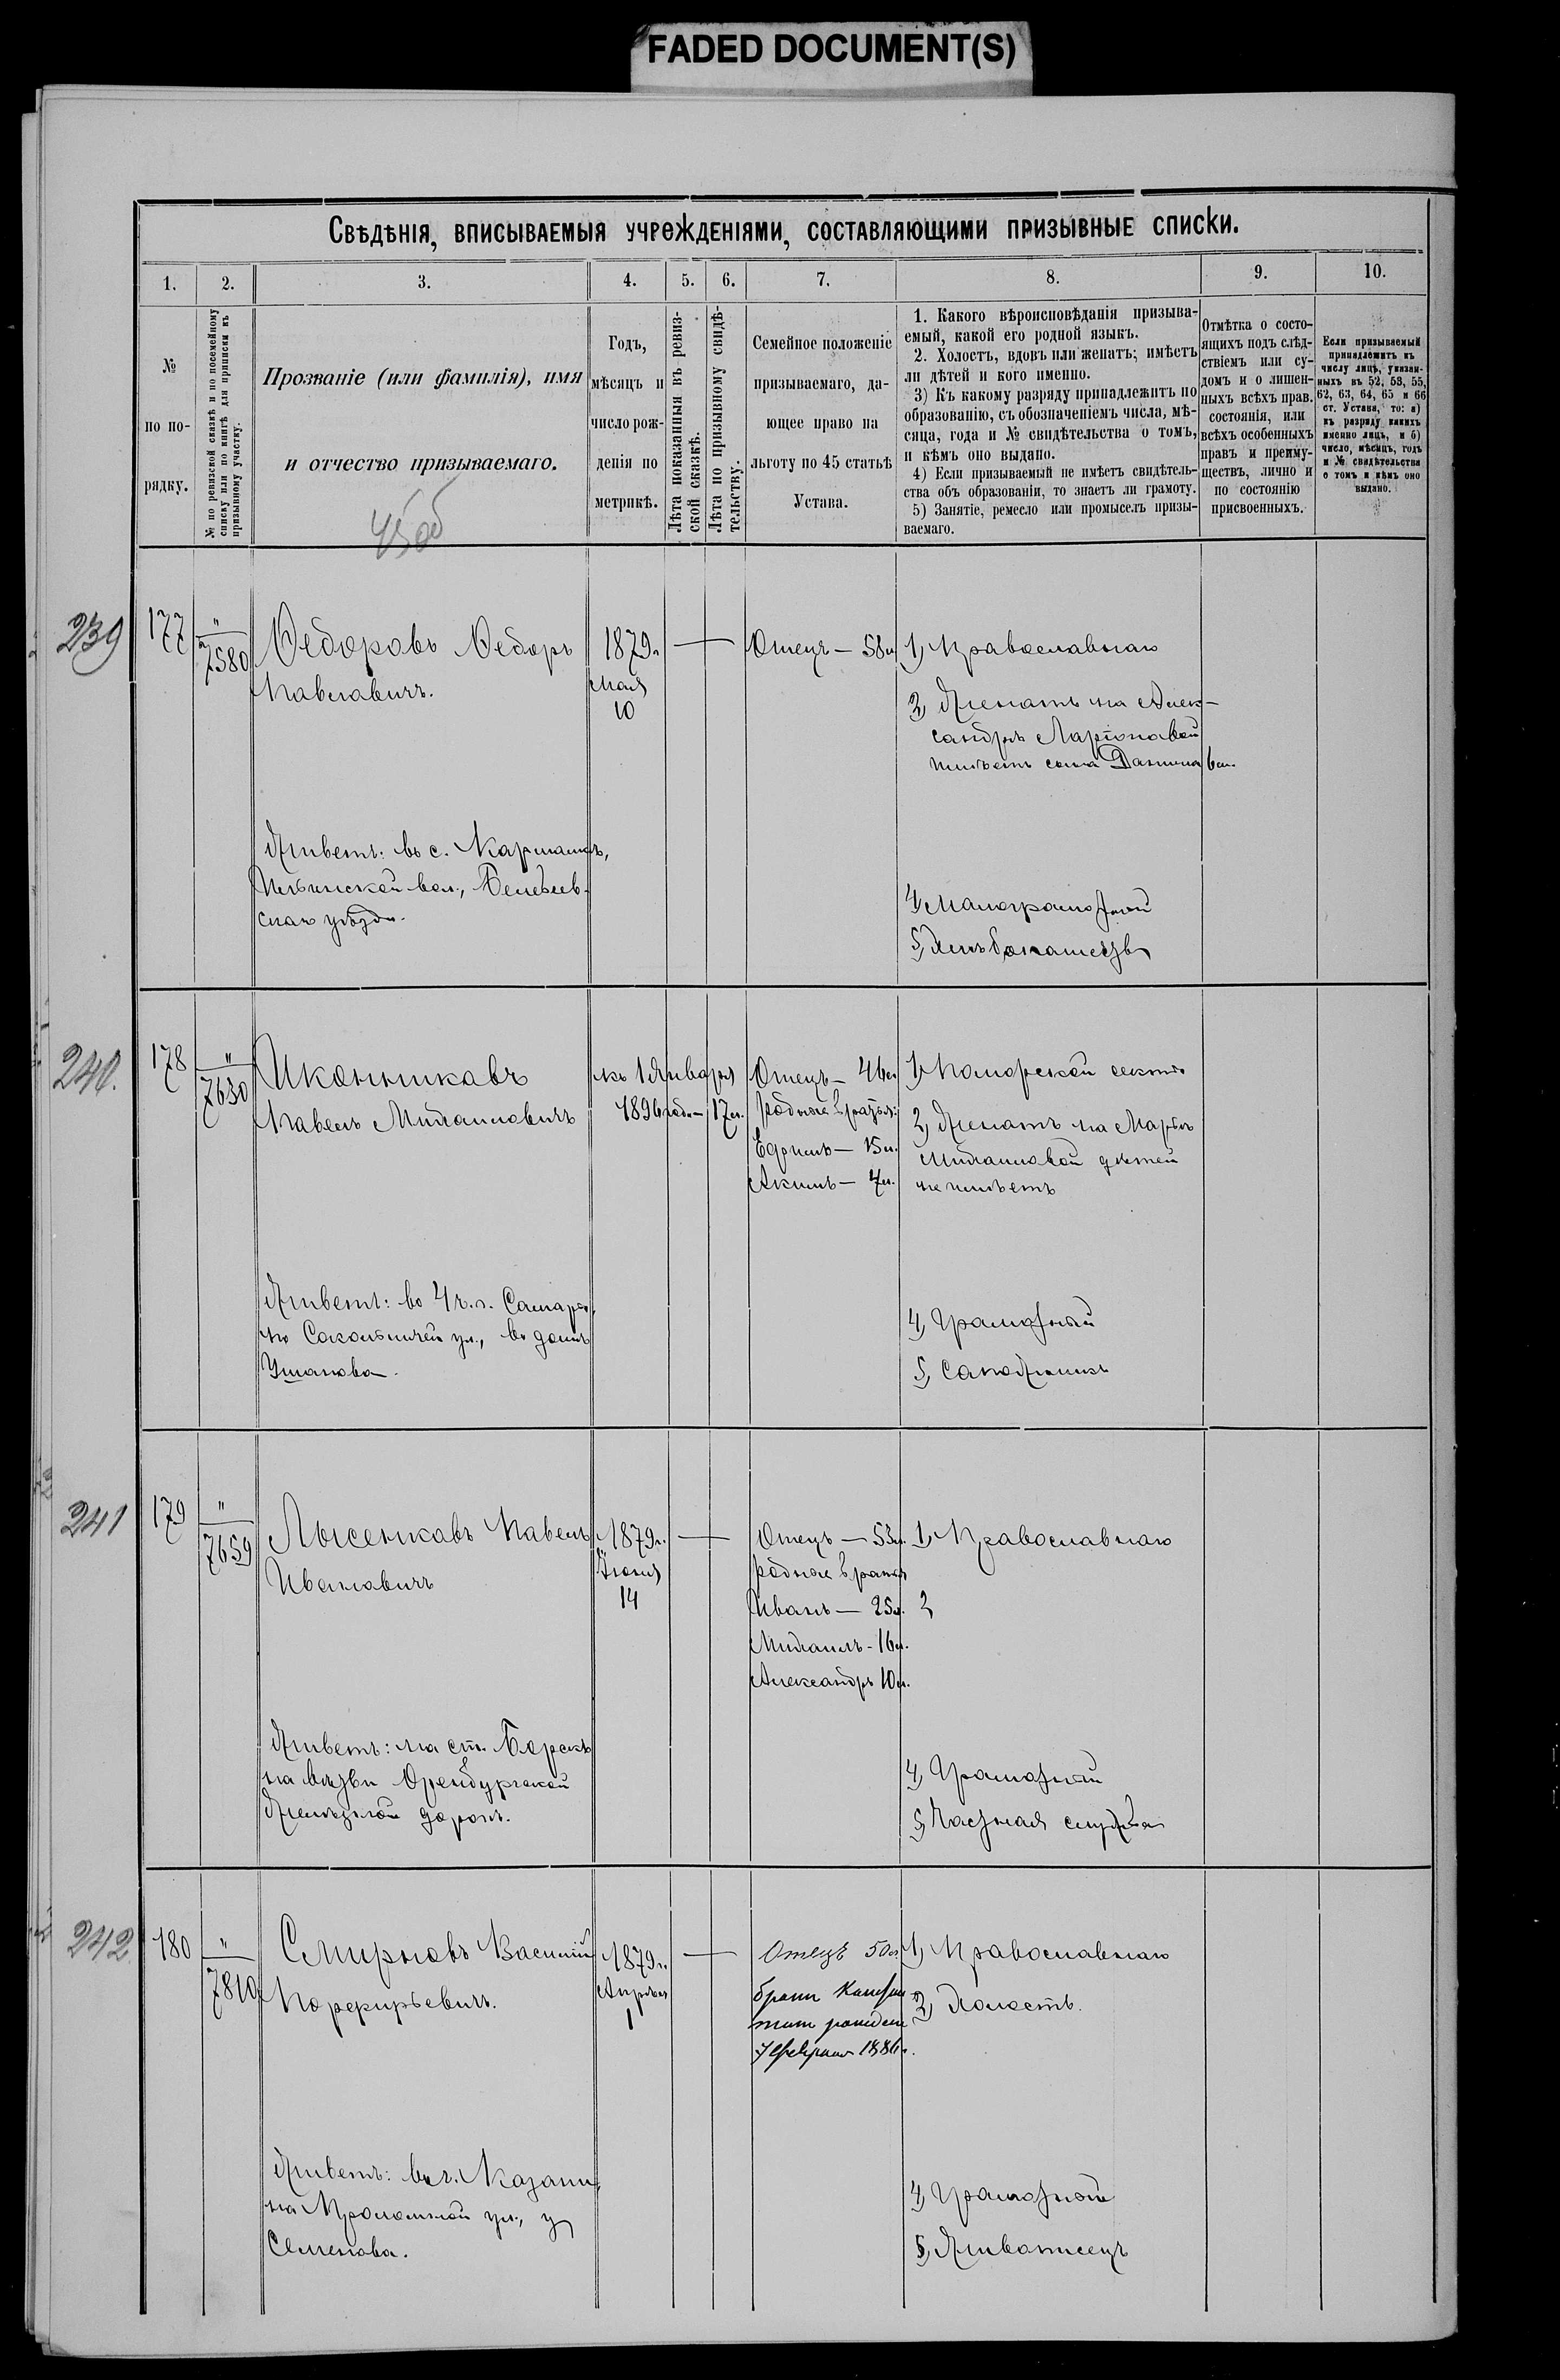 FADED DOCUMENT(S)
Свѣдѣнія, вписываемыя учрежденіями, составляющими призывные списки.
1. 2. 3. 4. 5. 6. 7. 8. 9. 10.
№
по по-
рядку.
№ по ревизской сказкѣ и по посемейному
списку или по книгѣ для приписки къ
призывному участку.
Прозваніе (или фамилія), имя
и отчество призываемаго.
Годъ,
мѣсяцъ и
число рож-
денія по
метрикѣ.
Лѣта показанныя въ ревиз-
ской сказкѣ.
Лѣта по призывному свидѣ-
тельству.
Семейное положеніе
призываемаго, да-
ющее право на
льготу по 45 статьѣ
Устава.
1. Какого вѣроисповѣданія призыва-
емый, какой его родной языкъ.
2. Холостъ, вдовъ или женатъ; имѣетъ
ли дѣтей и кого именно.
3) Къ какому разряду принадлежитъ по
образованію, съ обозначеніемъ числа, мѣ-
сяца, года и № свидѣтельства о томъ,
и кѣмъ оно выдано.
4) Если призываемый не имѣетъ свидѣтель-
ства объ образованіи, то знаетъ ли грамоту.
5) Занятіе, ремесло или промыселъ призы-
ваемаго.
Отмѣтка о состо-
ящихъ подъ слѣд-
ствіемъ или су-
домъ и о лишен-
ныхъ всѣхъ прав.
состоянія, или
всѣхъ особенныхъ
правъ и преиму-
ществъ, лично и
по состоянію
присвоенныхъ.
Если призываемый
принадлежитъ къ
числу лицъ, указан-
ныхъ въ 52, 53, 55,
62, 63, 64, 65 и 66
ст. Устава, то: а)
къ разряду какихъ
именно лицъ, и б)
число, мѣсяцъ, годъ
и № свидѣтельства
о томъ и кѣмъ оно
выдано.
239
177
"
7580
Ѳедоровъ Ѳедоръ
Павловичъ.
1879г.
Мая
10
Отецъ — 58л
1) Православнаго
2) Женатъ на Алек-
сандрѣ Ларіоновой
имѣетъ сына 6 м.
Живетъ: въ с.
вол., Белебеев-
скаго уѣзда.
4) Малограмотный
5)
240.
178
"
7630
Иконниковъ
Павелъ Михаиловичъ
къ 1 Января
1896 года — 17 л.
Отецъ — 46л
родные братья:
Ефимъ — 15 л.
Акимъ — 7л.
1) Поморской секты
2) Женатъ на Марьѣ
Михаиловой дѣтей
не имѣетъ
Живетъ: во 4 ч. г. Самары,
по Сокольничей ул., въ домѣ
Ушакова.
4) Грамотный
5) Сапожникъ
241
179
"
7659
Лысенковъ Павелъ
Ивановичъ
1879г.
Іюня
14
Отецъ — 53л.
родные братья
Иванъ — 25л.
Михаилъ - 16л.
Александръ 10л.
1) Православнаго
2)
Живетъ: на ст. Борскъ
на Оренбургской
Желѣзной дорогѣ.
4) Грамотный
5) Частная служба
242
180
"
7810
Смирновъ Василій
Порфирьевичъ.
1879г.
Апрѣля
1
Отецъ 50л
братъ
7 Февраля 1886г.
1) Православнаго
2) Холостъ.
Живетъ: въ г. Казани,
на Проломной ул., у
Семенова.
4) Грамотной
5) Живописецъ